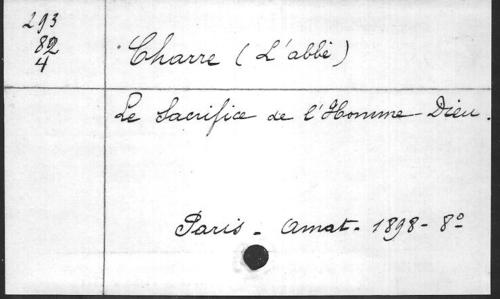 293
82
4
Charre (L'abbé)
Le Sacrifice de l'Homme-Dieu.
Paris - Amat - 1898 - 8º